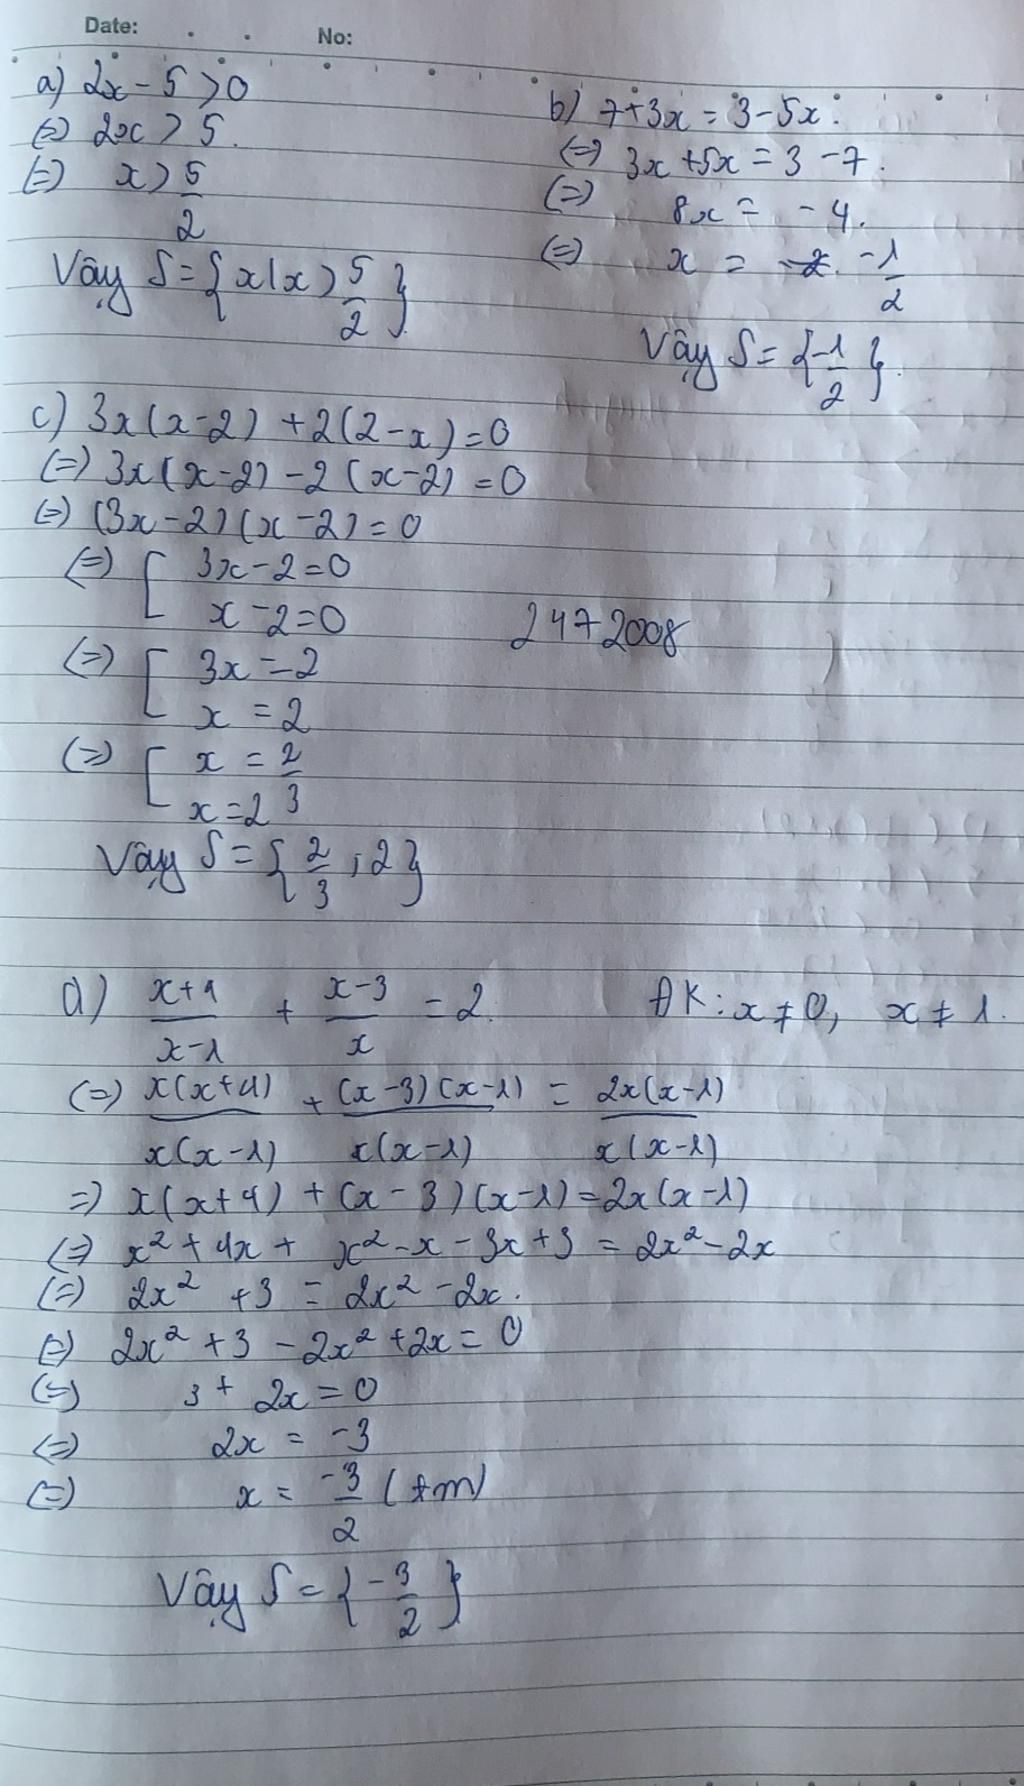 Date: . . No:
a) 2x - 5 > 0
(=) 2x > 5.
(=) x > 5/2
Vậy S = {x|x > 5/2}
b) 7 + 3x = 3 - 5x.
(=) 3x + 5x = 3 - 7.
(=) 8x = - 4.
(=) x = -1/2
Vậy S = {-1/2}.
c) 3x(x-2) + 2(2-x) = 0
(=) 3x(x-2) - 2(x-2) = 0
(=) (3x-2)(x-2) = 0
(=) [ 3x - 2 = 0
x - 2 = 0
2472008
(=) [ 3x = 2
x = 2
(=) [ x = 2/3
x = 2
Vậy S = {2/3 ; 2}
d) (x+4)/(x-1) + (x-3)/x = 2. ĐK: x ≠ 0, x ≠ 1.
(=) x(x+4)/x(x-1) + (x-3)(x-1)/x(x-1) = 2x(x-1)/x(x-1)
=) x(x+4) + (x-3)(x-1) = 2x(x-1)
(=) x² + 4x + x² - x - 3x + 3 = 2x² - 2x
(=) 2x² + 3 = 2x² - 2x.
(=) 2x² + 3 - 2x² + 2x = 0
(=) 3 + 2x = 0
(=) 2x = -3
(=) x = -3/2 (tm)
Vậy S = {-3/2}